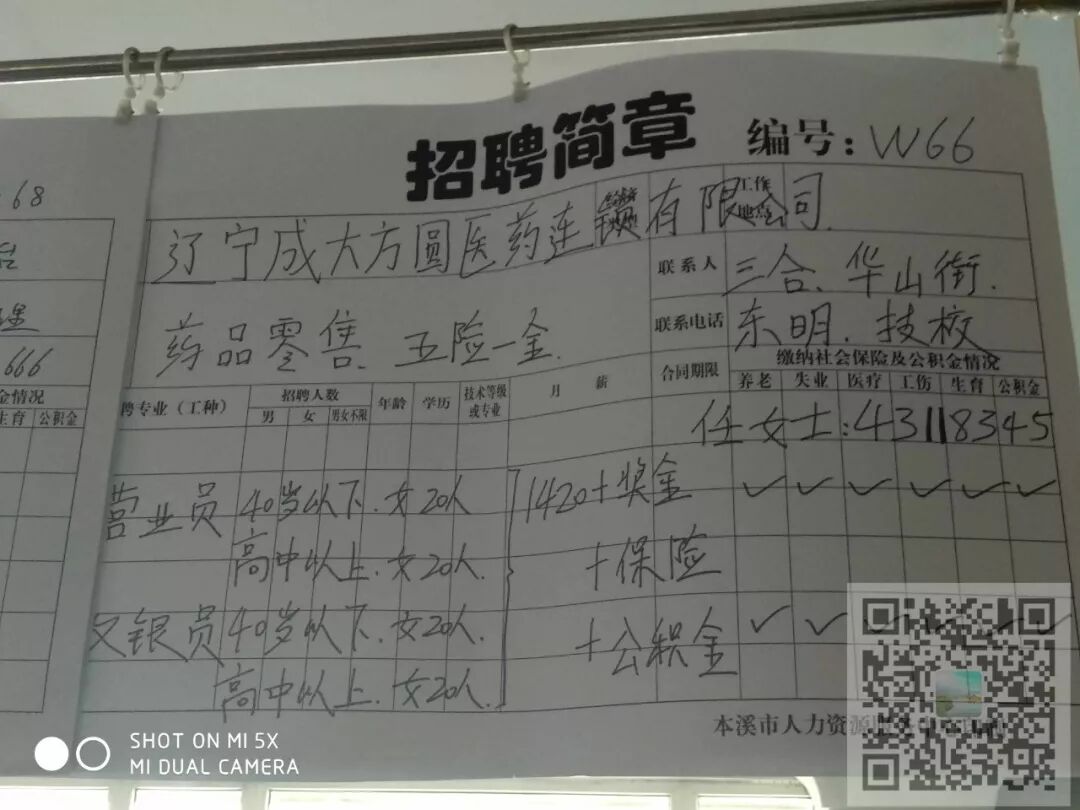 招聘简章
编号：W66
68
辽宁成大方圆医药连锁有限公司.
工作地点
联系人
三合、华山街.
药品零售. 五险一金.
联系电话
东明. 技校
666
合同期限
缴纳社会保险及公积金情况
养老 失业 医疗 工伤 生育 公积金
金情况
生育 公积金
聘专业（工种）
招聘人数
男 女 男女不限
年龄
学历
技术等级或专业
月 薪
任女士：43118345
营业员 40岁以下. 女20人
1420+奖金
高中以上. 女20人.
+保险
收银员 40岁以下. 女20人.
+公积金
高中以上. 女20人.
本溪市人力资源
SHOT ON MI 5X
MI DUAL CAMERA